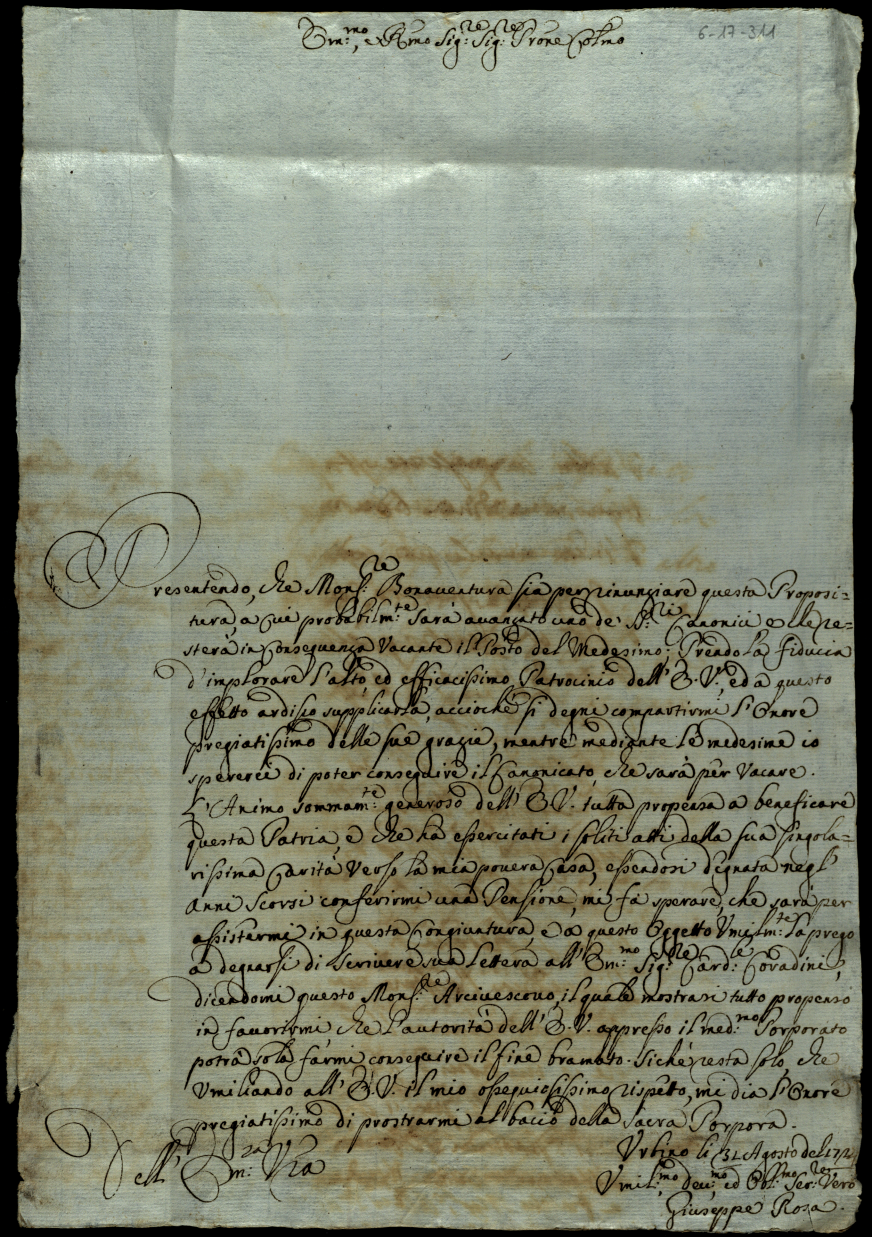 Em:mo, e Rmo Sig:re Sig:re Prone Colmo
6-17-311
Presentendo, che Mons:re Bonaventura sia per rinunziare questa Proposi=
tura, a cui probabilm:te sarà avanzato uno de' SS:ri Canonici e che re=
sterà in Conseguenza Vacante il Posto del Medesimo; Prendo la fiducia
d'implorare l'alto, ed efficacissimo Patrocinio dell'E.V., ed a questo
effetto ardisco supplicarla, acciochè si degni compartirmi l'Onore
pregiatissimo delle sue grazie, mentre mediante le medesime io
spererei di poter conseguire il Canonicato, che sarà per Vacare.
L'Animo sommam:te generoso dell'E.V. tutta propensa a beneficare
questa Patria, e che ha essercitati i soliti atti della sua singola=
rissima Carità Verso la mia povera Casa, essendosi degnata negl'
anni scorsi conferirmi una Pensione, mi fà sperare, che sarà per
assistermi in questa Congiuntura, e a questo Oggetto Umilm:te la prego
a degnarsi di scrivere sua lettera all'Em:mo Sig:re Card:le Coradini,
dicendomi questo Mons:re Arcivescovo, il quale mostrasi tutto propenso
in favorirmi che l'autorità dell'E.V. appresso il med:mo Porporato
potrà sola farmi conseguire il fine bramato. Sichè resta solo, che
Umiliando all'E.V. il mio ossequiosissimo rispetto, mi dia l'Onore
pregiatissimo di prostrarmi al bacio della Sacra Porpora.
Urbino li 31 Agosto del 172
Dell' Em:za Vra
Umil:mo dev:mo ed Obl:mo Ser:re Vero
Giuseppe Rosa.